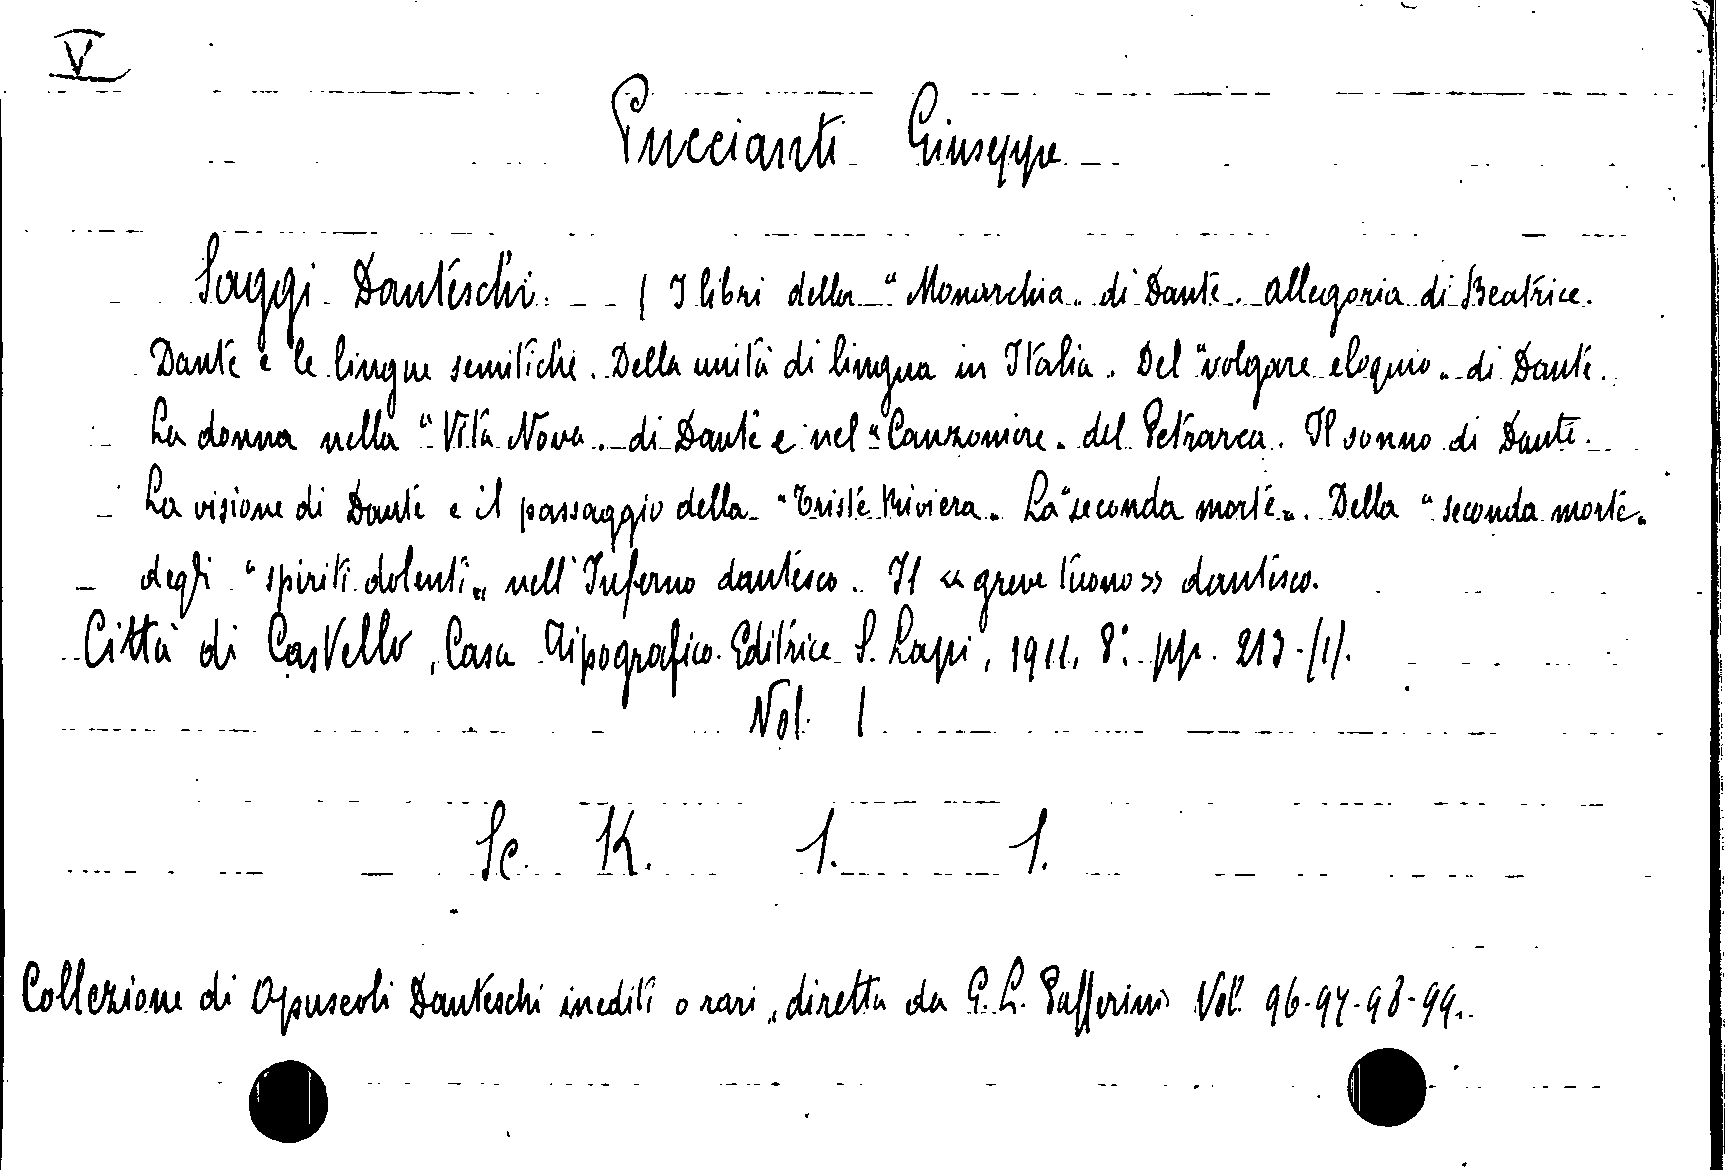 V
Puccianti Giuseppe
Saggi Danteschi. ( I libri della "Monarchia" di Dante. Allegoria di Beatrice.
Dante e le lingue semitiche. Della unità di lingua in Italia. Del "volgare eloquio" di Dante.
La donna nella "Vita Nova" di Dante e nel "Canzoniere" del Petrarca. Il sonno di Dante.
La visione di Dante e il passaggio della "Triste Riviera" La "seconda morte". Della "seconda morte"
degli "spiriti dolenti" nell'Inferno dantesco. Il «greve tuono» dantesco.
Città di Castello, Casa Tipografico-Editrice S. Lapi, 1911, 8° pp. 213-(1).
Vol. 1
Sc. K. 1. 1.
Collezione di Opuscoli Danteschi inediti o rari, diretta da G. L. Passerini Vol. 96-97-98-99.